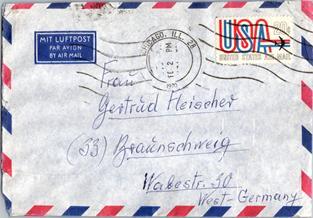 MIT LUFTPOST
PAR AVION
BY AIR MAIL
CHICAGO, ILL.
PM
USA 20c
UNITED STATES AIR MAIL
Frau
Gertrud Fleischer
(33) Braunschweig
Wabestr. 30
West-Germany